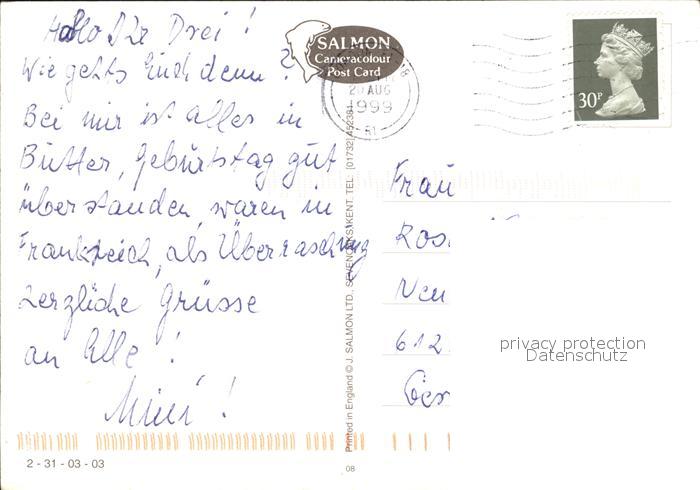 Hallo Ihr Drei !
Wie gehts Euch denn ?
Bei mir ist alles in
Butter, Geburtstag gut
überstanden, waren in
Frankreich, als Überraschung
Herzliche Grüsse
an Alle !
Mini !
SALMON
Cameracolour
Post Card
20 AUG
1999
30P
Frau
Ros
Neu
612
Ger
privacy protection
Datenschutz
Printed in England © J. SALMON LTD., SEVENOAKS, KENT. TEL: (01732) 452381
2 - 31 - 03 - 03
08